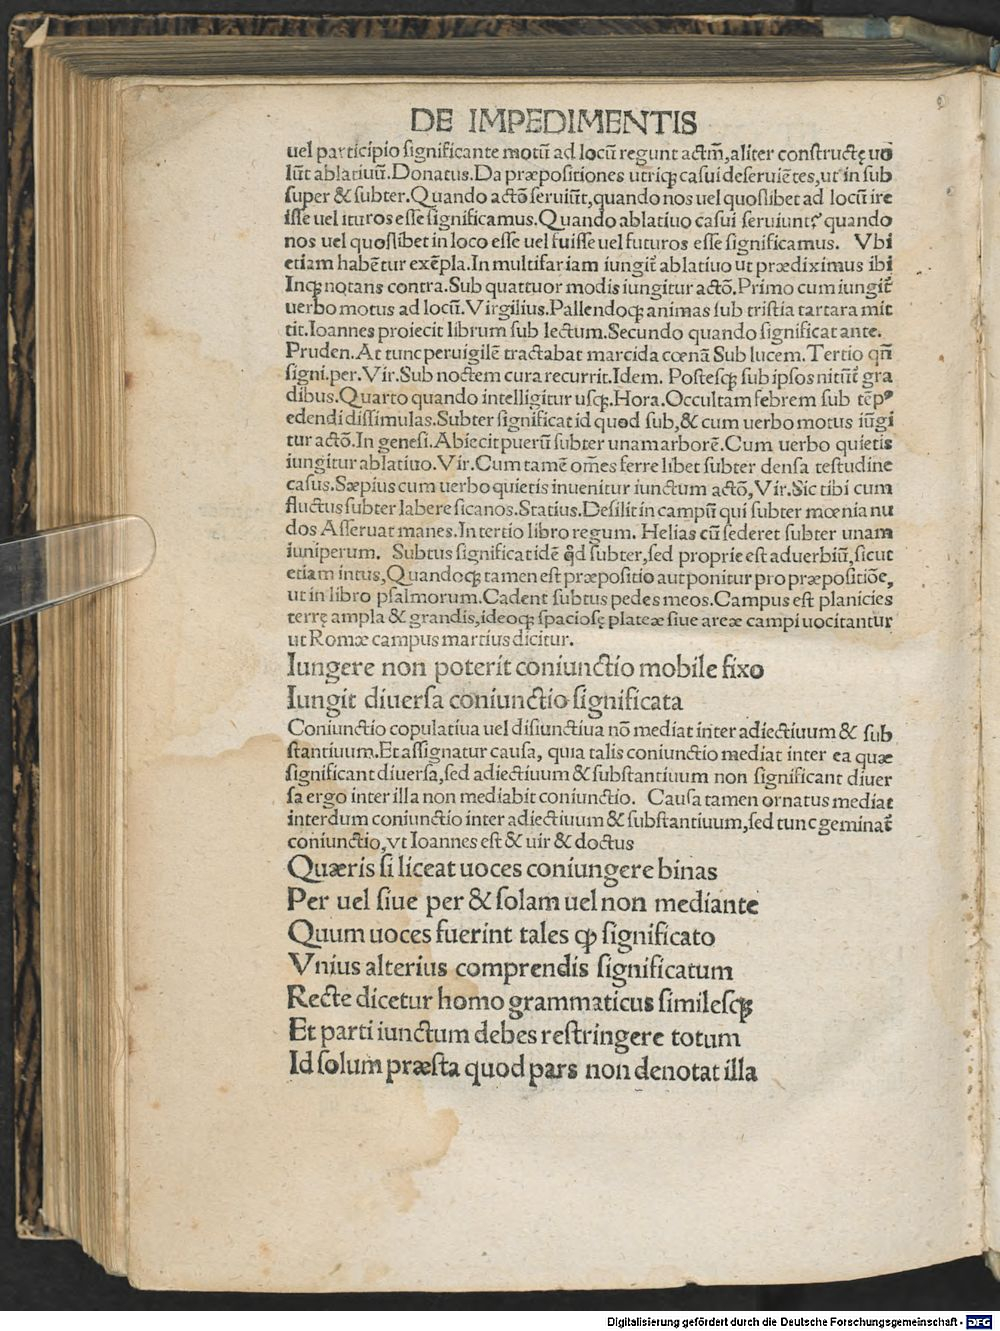 DE IMPEDIMENTIS
uel participio ſignificante motū ad locū regunt actm̄,aliter conſtructę uo
lūt ablatiuū.Donatus.Da præpoſitiones utriqꝫ caſui deſeruiētes,ut in ſub
ſuper & ſubter.Quando actō ſeruiūt,quando nos uel quoſlibet ad locū ire
iſſe uel ituros eſſe ſignificamus.Quando ablatiuo caſui ſeruiunt? quando
nos uel quoſlibet in loco eſſe uel fuiſſe uel futuros eſſe ſignificamus. Vbi
etiam habētur exēpla.In multifariam iungit̄ ablatiuo ut prædiximus ibi
Inqꝫ notans contra.Sub quattuor modis iungitur actō.Primo cum iungit̄
uerbo motus ad locū.Virgilius.Pallendoqꝫ animas ſub triſtia tartara mit
tit.Ioannes proiecit librum ſub lectum.Secundo quando ſignificat ante.
Pruden.At tunc peruigilē tractabat marcida cœnā Sub lucem.Tertio qn̄
ſigni.per.Vir.Sub noctem cura recurrit.Idem. Poſteſqꝫ ſub ipſos nitūt̄ gra
dibus.Quarto quando intelligitur uſqꝫ.Hora.Occultam febrem ſub tēpꝰ
edendi diſſimulas.Subter ſignificat id quod ſub,& cum uerbo motus iūgi
tur actō.In geneſi.Abiecit puerū ſubter unam arborē.Cum uerbo quietis
iungitur ablatiuo.Vir.Cum tamē om̄es ferre libet ſubter denſa teſtudine
caſus.Sæpius cum uerbo quietis inuenitur iunctum actō,Vir.Sic tibi cum
fluctus ſubter labere ſicanos.Statius.Deſilit in campū qui ſubter mœnia nu
dos Aſſeruat manes.In tertio libro regum. Helias cū ſederet ſubter unam
iuniperum. Subtus ſignificat idē qd̄ ſubter,ſed proprie eſt aduerbiū,ſicut
etiam intus,Quandoqꝫ tamen eſt præpoſitio aut ponitur pro præpoſitiōe,
ut in libro pſalmorum.Cadent ſubtus pedes meos.Campus eſt planicies
terrę ampla & grandis,ideoqꝫ ſpacioſę plateæ ſiue areæ campi uocitantur
ut Romæ campus martius dicitur.
Iungere non poterit coniunctio mobile fixo
Iungit diuerſa coniunctio ſignificata
Coniunctio copulatiua uel diſiunctiua nō mediat inter adiectiuum & ſub
ſtantiuum.Et aſſignatur cauſa, quia talis coniunctio mediat inter ea quæ
ſignificant diuerſa,ſed adiectiuum & ſubſtantiuum non ſignificant diuer
ſa ergo inter illa non mediabit coniunctio. Cauſa tamen ornatus mediat
interdum coniunctio inter adiectiuum & ſubſtantiuum,ſed tunc geminat̄
coniunctio,vt Ioannes eſt & uir & doctus
Quæris ſi liceat uoces coniungere binas
Per uel ſiue per & ſolam uel non mediante
Quum uoces fuerint tales ꝙ ſignificato
Vnius alterius comprendis ſignificatum
Recte dicetur homo grammaticus ſimileſqꝫ
Et parti iunctum debes reſtringere totum
Id ſolum præſta quod pars non denotat illa
Digitalisierung gefördert durch die Deutsche Forschungsgemeinschaft - DFG